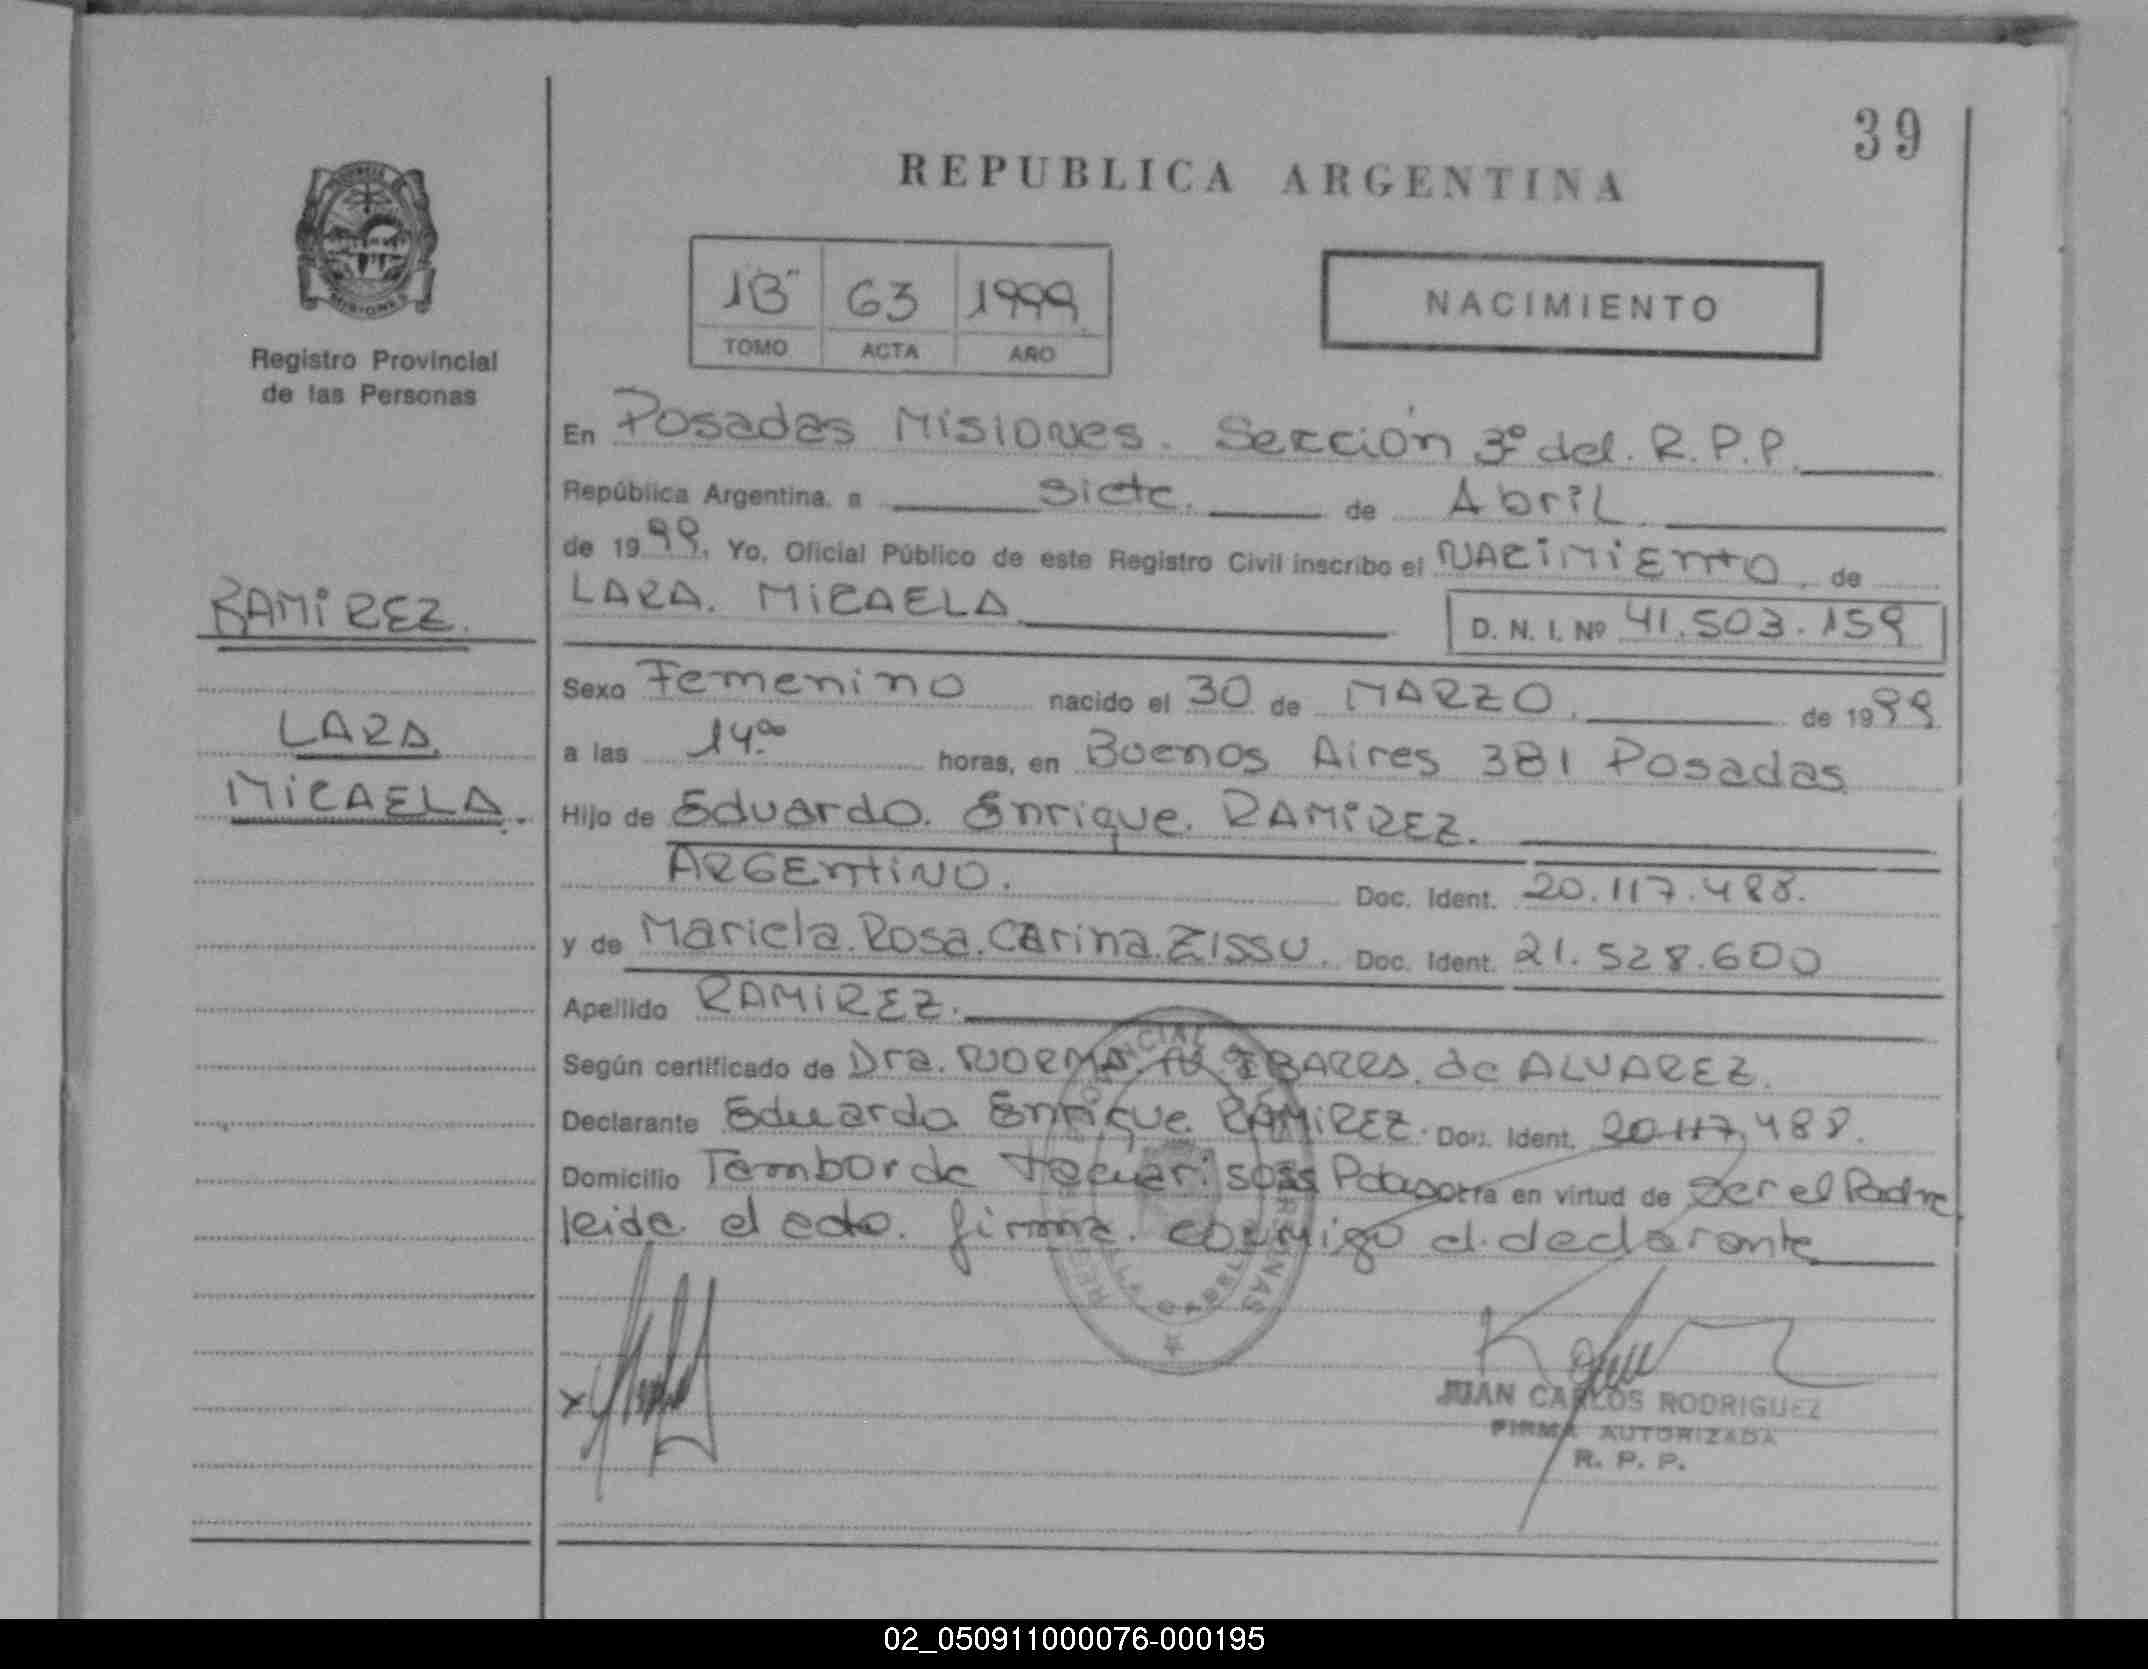 39
REPUBLICA ARGENTINA
1B" 63 1999
TOMO ACTA AÑO
NACIMIENTO
MISIONES
Registro Provincial
de las Personas
RAMIREZ.
LARA
MICAELA.
En Posadas Misiones. Sección 3º del. R.P.P.
República Argentina, a siete. de Abril.
de 1999. Yo, Oficial Público de este Registro Civil inscribo el NACIMIENTO, de
LARA. MICAELA.
D. N. I. Nº 41.503.159
Sexo Femenino nacido el 30 de MARZO. de 1999.
a las 14.00 horas, en Buenos Aires 381 Posadas
Hijo de Eduardo. Enrique. RAMIREZ.
ARGENTINO. Doc. Ident. 20.117.488.
y de Mariela.Rosa.Carina.ZISSU. Doc. Ident. 21.528.600
Apellido RAMIREZ.
Según certificado de Dra. NORMA. de ALVAREZ.
Declarante Eduardo Enrique RAMIREZ. Doc. Ident. 20.117.488.
Domicilio Tambor de Tacuari en virtud de ser el Padre
leida el acta. firma. conmigo el declarante
JUAN CARLOS RODRIGUEZ
FIRMA AUTORIZADA
R. P. P.
02_050911000076-000195